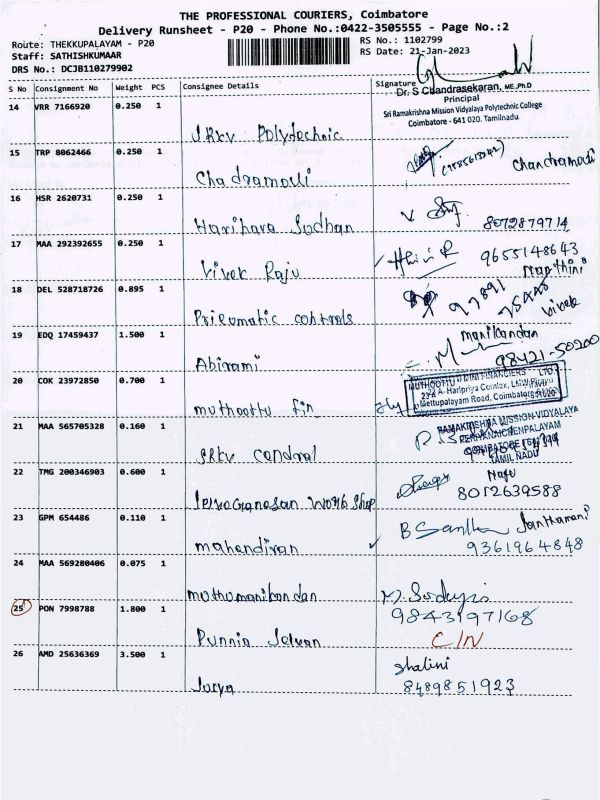 THE PROFESSIONAL COURIERS, Coimbatore
Delivery Runsheet - P20 - Phone No.:0422-3505555 - Page No.:2
Route: THEKKUPALAYAM - P20
RS No.: 1102799
Staff: SATHISHKUMAAR
RS Date: 21-Jan-2023
DRS No.: DCJB110279902
S No Consignment No Weight PCS Consignee Details Signature
Dr. S Chandrasekaran, ME.,Ph.D
Principal
Sri Ramakrishna Mission Vidyalaya Polytechnic College
Coimbatore - 641 020. Tamilnadu
14 VRR 7166920 0.250 1
SRKV Polytechnic
15 TRP 8062466 0.250 1
Chadramouli
Chandramouli
16 HSR 2620731 0.250 1
Harihara Sudhan
8072879714
17 MAA 292392655 0.250 1
Vivek Raju
9655148643
18 DEL 528718726 0.895 1
Prieumatic controls
97891
Vivek
19 EDQ 17459437 1.500 1
Abirami
Manikandan
98421-50200
20 COK 23972850 0.700 1
muthoottu fin
MUTHOOTTU MINI FINANCIERS LTD.
Mettupalayam Road, Coimbatore
21 MAA 565705328 0.160 1
SRKV
RAMAKRISHNA MISSION VIDYALAYA
PERIYANAICKENPALAYAM
COIMBATORE
TAMIL NADU
22 TMG 200346903 0.600 1
work shop
8012639588
23 GPM 654486 0.110 1
mahendiran
B Santha
9361964848
24 MAA 569280406 0.075 1
muthumanikandan
9843197168
25 PON 7998788 1.800 1
Punnia Selvan
C/N
26 AMD 25636369 3.500 1
Surya
Shalini
8489851923